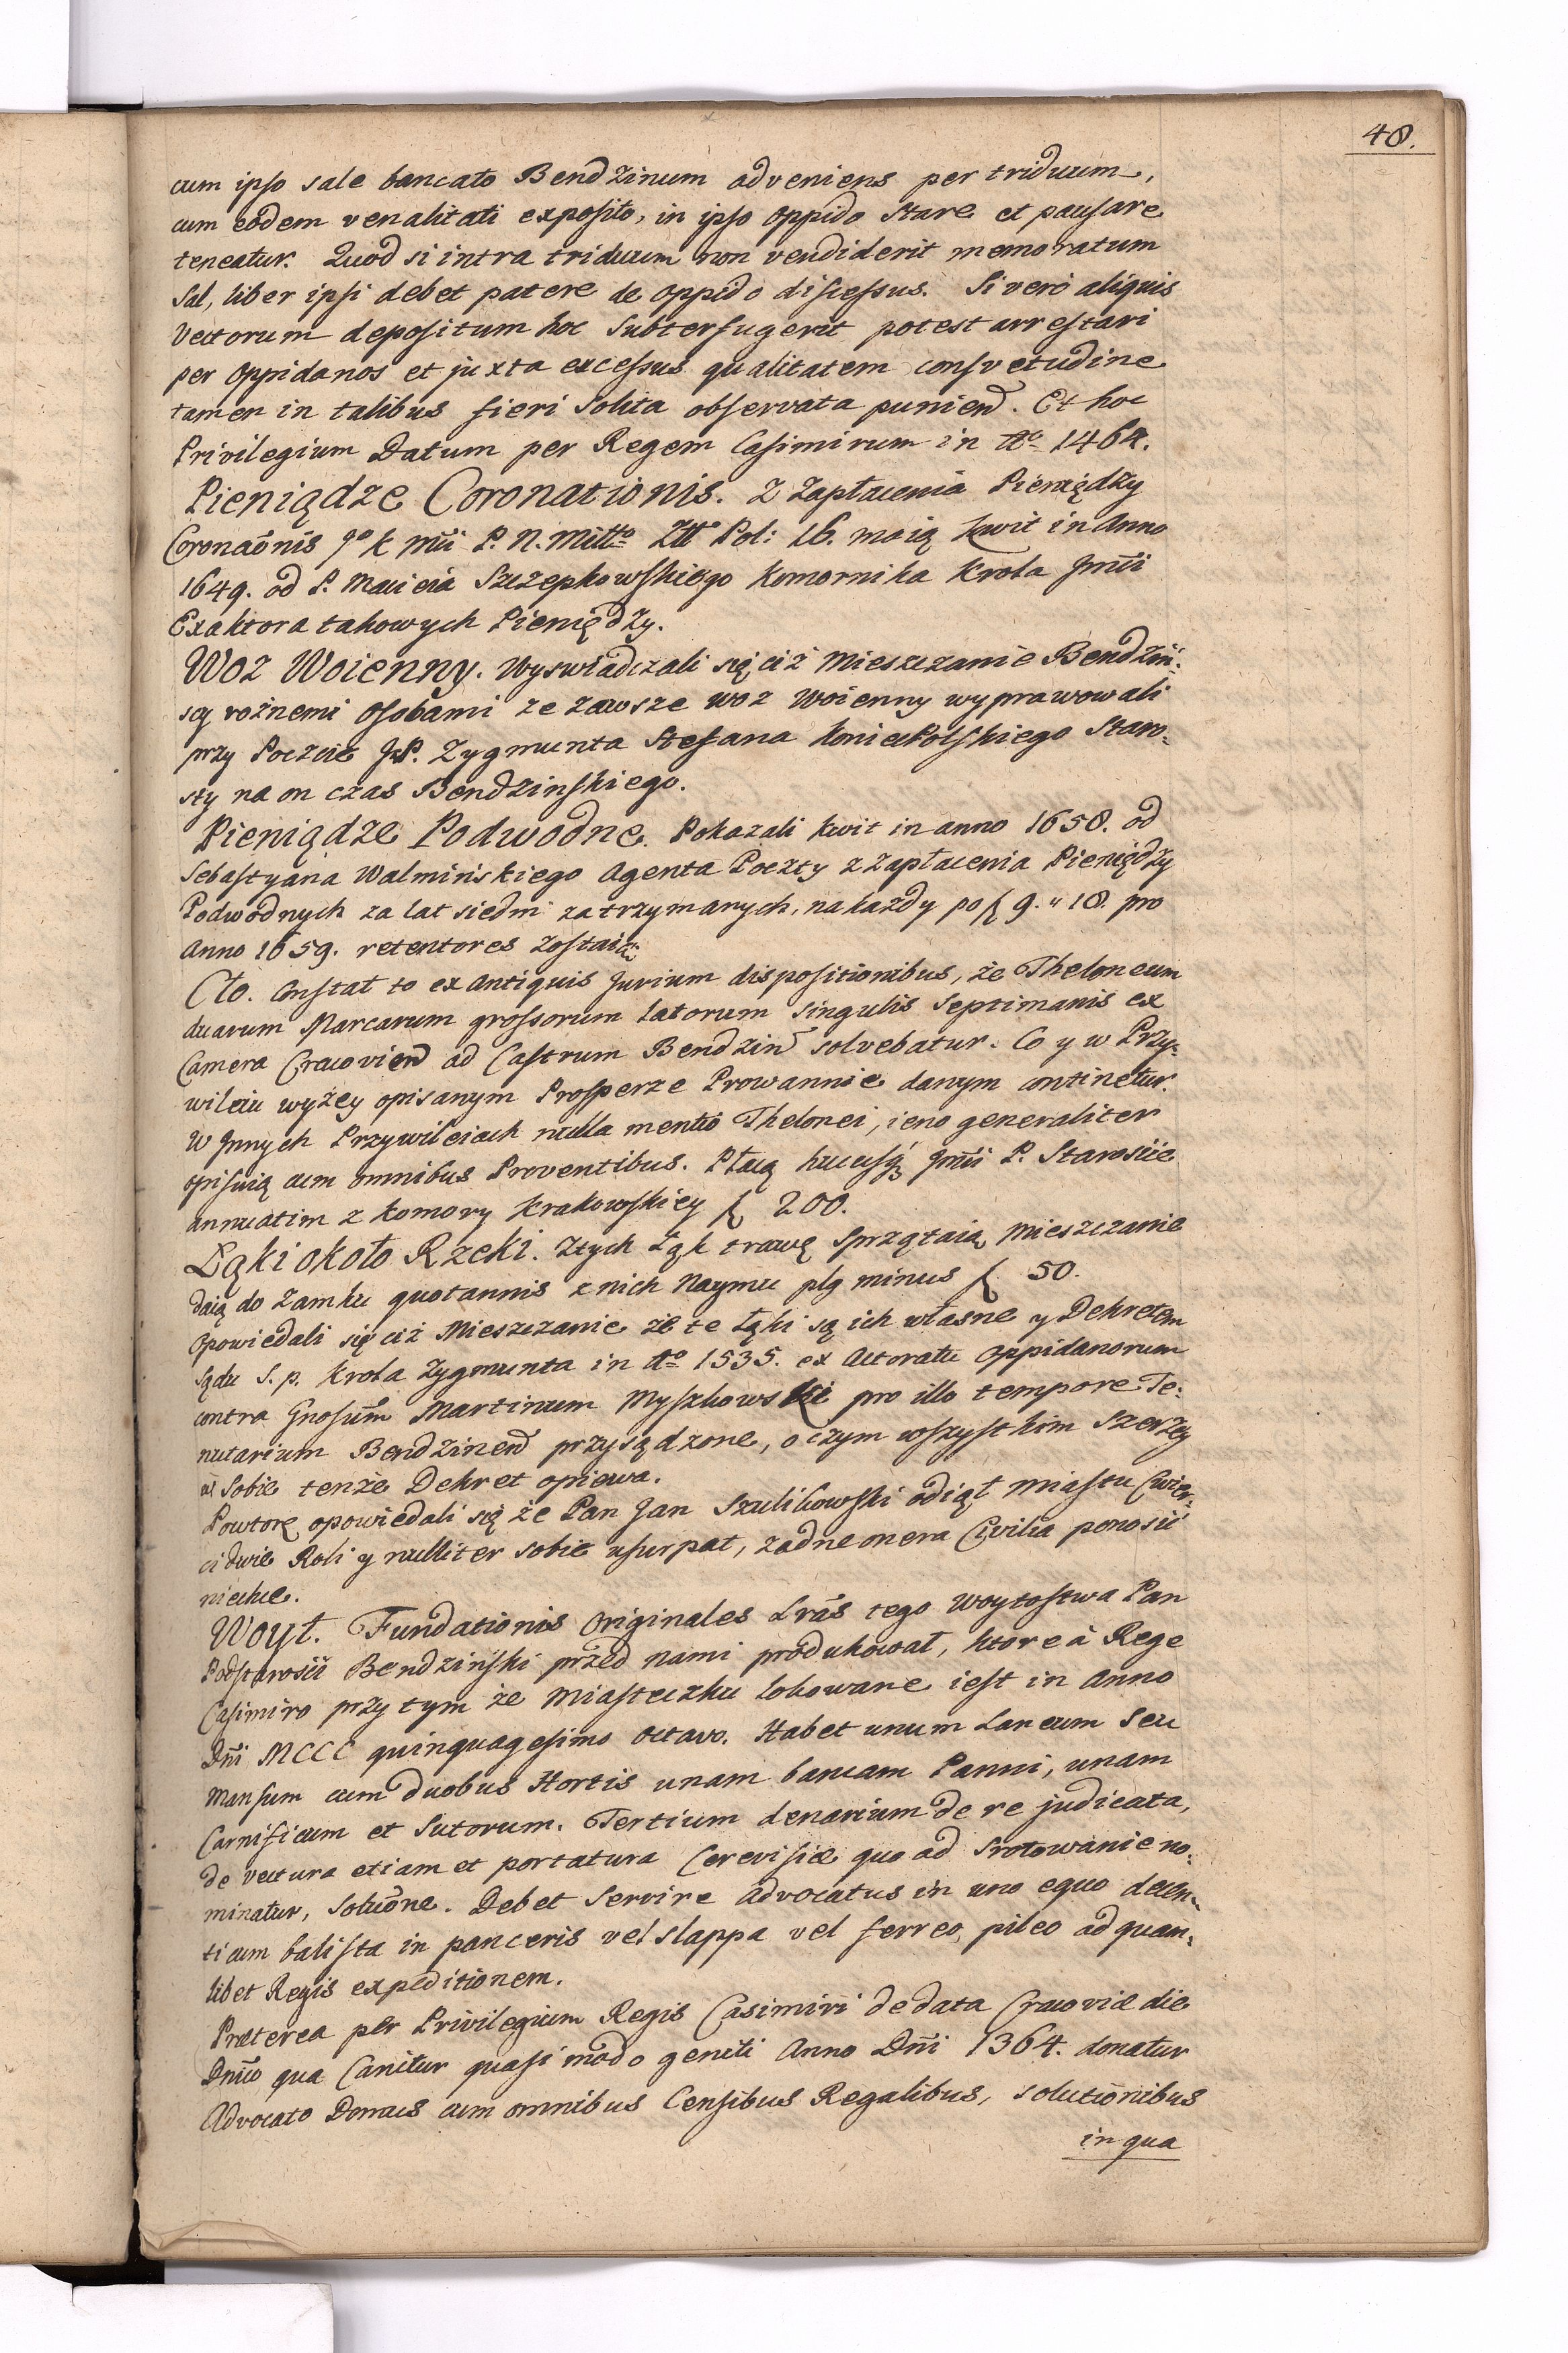 48.
cum ipso sale bancato Bendzinum adveniens per triduum,
cum eodem venalitati exposito, in ipso oppido stare et pausare
teneatur. Quod si intra triduum non vendiderit memoratum
Sal, liber ipsi debet patere de oppido discessus. Si vero aliquis
Vectorum depositum hoc subterfugerit potest arrestari
per oppidanos et juxta excessus qualitatem consvetudine
tamen in talibus fieri solita observata puniend. Et hoc
Privilegium Datum per Regem Casimirum in Ao 1464.
Pieniądze Coronationis. Z zapłacenia Pieniędzy
Coronaōnis K P. N. Pol: 16. maią kwit in Anno
1649. od P. Macieia Szczepkowskiego Komornika Krola Jmći
Exaktora takowych Pieniędzy.
Woz Woienny. Wyswiadczali się ciż Mieszczanie Bendziń:
scy rożnemi Osobami że zawsze woz Woienny wyprawowali
przy Poczcie JP. Zygmunta Stefana Koniecpolskiego Staro:
sty na on czas Bendzinskiego.
Pieniądze Podwodne. Pokazali kwit in anno 1658. od
Sebastyana Walminskiego Agenta Poczty z zapłacenia Pieniędzy
Podwodnych za lat siedm zatrzymanych, na każdy po f 9. " 18. pro
Anno 1659. retentores zostaią.
Cło. Constat to ex antiquis Jurium dispositionibus, że Theloneum
duarum Marcarum grossorum latorum singulis septimanis ex
Camera Cracovien ad Castrum Bendzin solvebatur. Co y w Przy:
wileiu wyżey opisanym Prosperze Prowannie danym continetur.
W Jnnych Przywileiach nulla mentio Thelonei, ieno generaliter
opisuią cum omnibus Proventibus. Płacą hucusq Jmći P. Starosćie
annuatim z Komory Krakowskiey f 200.
Łąki około Rzeki. Z tych Łąk trawę sprzątaią Mieszczanie
daią do Zamku quotannis z nich Naymu plg minus f 50.
Opowiedali się ciż Mieszczanie że te łąki są ich własne y Dekretem
Sądu S. p. Krola Zygmunta in Ao 1535. ex Actoratu Oppidanorum
contra Gnosum Martinum Myszkowski pro illo tempore Te:
nutarium Bendzinen przysądzone, o czym wszystkim szerzey
w sobie tenże Dekret opiewa.
Powtore opowiedali się że Pan Jan Szulikowski odiął miastu Cwier:
ci dwie Roli y nulliter sobie usurpat, żadne onera Civilia ponosić
niechce.
Woyt. Fundationis Originales Lrās tego Woytostwa Pan
Podstarosći Bendziński przed nami produkował, ktore à Rege
Casimiro przy tym że Miasteczku lokowane iest in Anno
Dni MCCC quinquagesimo octavo. Habet unum Laneum seu
Mansum cum duobus Hortis unam bancam Panni, unam
Carnificum et Sutorum. Tertium denarium de re judicata,
de vectura etiam et portatura Cerevisiæ quo ad srotowanie no:
minatur, solutōne. Debet servire Advocatus in uno equo decen:
ti cum balista in panceris vel slappa vel ferreo pileo ad quam:
libet Regis expeditionem.
Præterea per Privilegium Regis Casimiri de data Cracoviæ die
Dnico qua Canitur quasi modo geniti Anno Dni 1364. donatur
Advocato Domus cum omnibus Censibus Regalibus, solutionibus
in qua